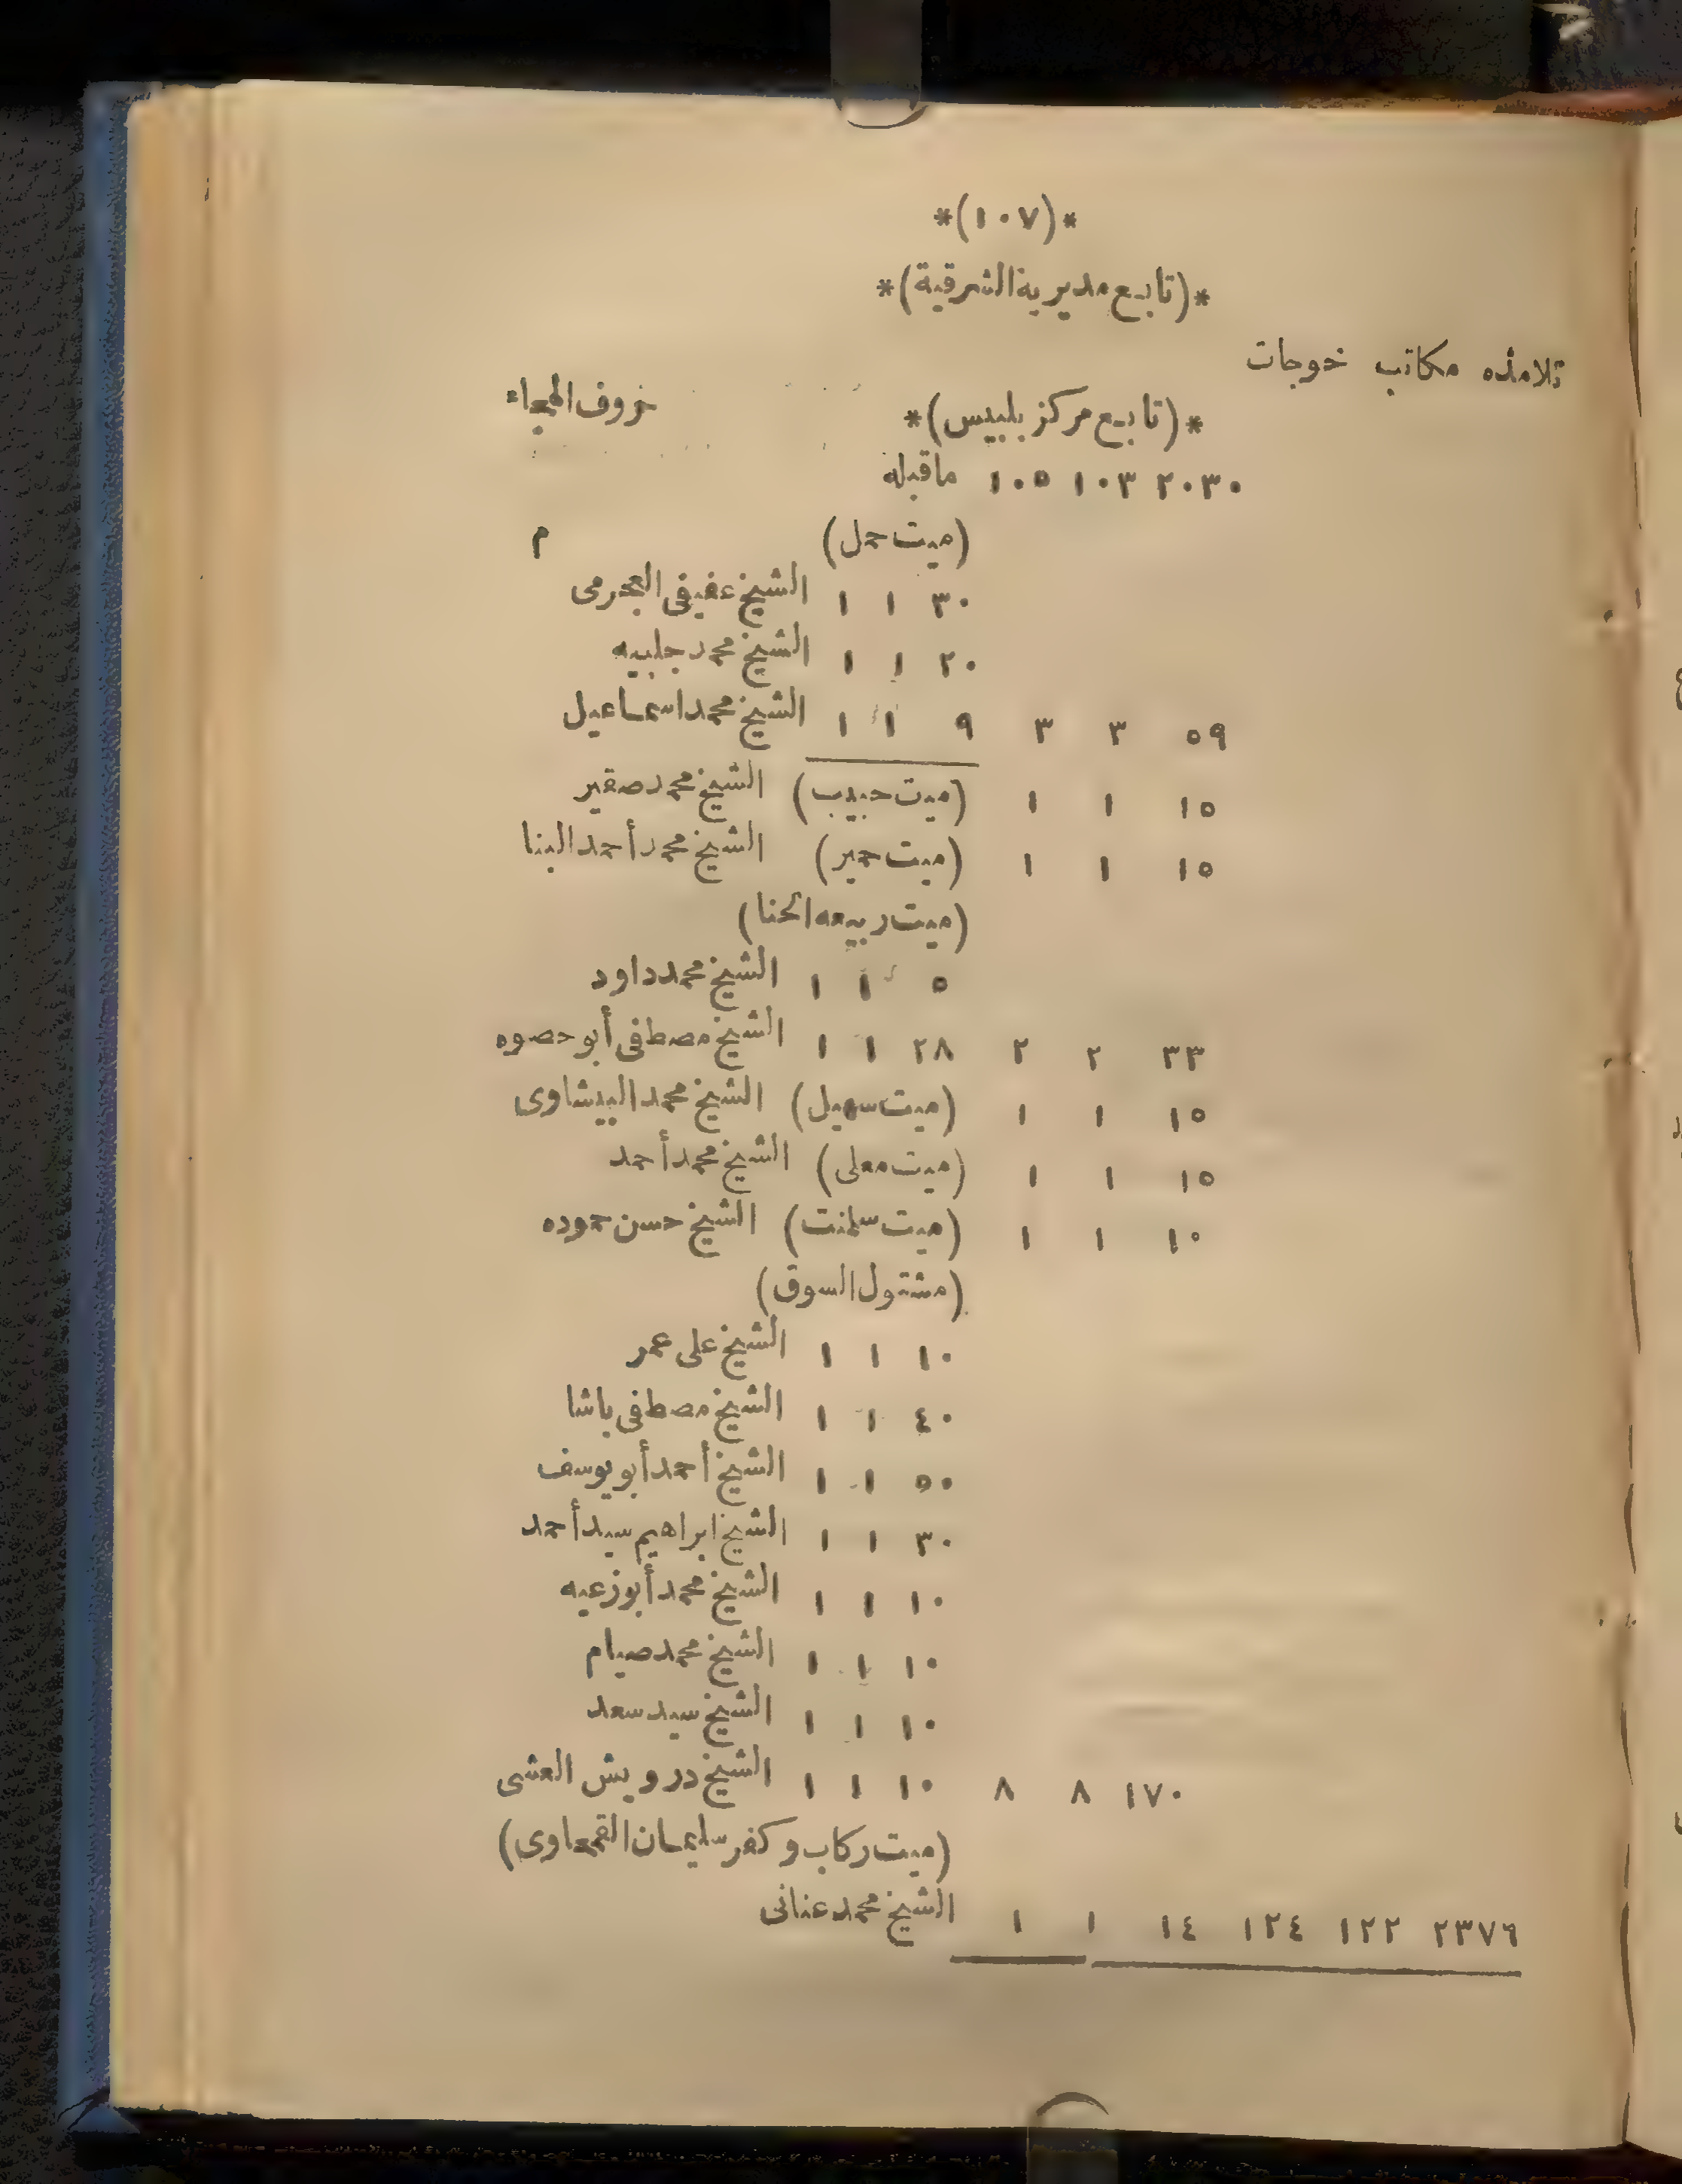 *(١٠٧)*
*(تابع مديرية الشرقية)*
تلامذه مكاتب خوجات
*(تابع مركز بلبيس)* حروف الهجاء
٢٠٣٠ ١٠٣ ١٠٥ ماقبله
(ميت حمل) م
٣٠ ١ ١ الشيخ عفيفى العجرمى
٢٠ ١ ١ الشيخ محمد جلبيه
٥٩ ٣ ٣ ٩ ١ ١ الشيخ محمد اسماعيل
١٥ ١ ١ (ميت حبيب) الشيخ محمد صقير
١٥ ١ ١ (ميت حمير) الشيخ محمد أحمد البنا
(ميت ربيعه الحنا)
٥ ١ ١ الشيخ محمد داود
٣٣ ٢ ٢ ٢٨ ١ ١ الشيخ مصطفى أبو حصوه
١٥ ١ ١ (ميت سهيل) الشيخ محمد البيشاوى
١٥ ١ ١ (ميت معلى) الشيخ محمد أحمد
١٠ ١ ١ (ميت سلمنت) الشيخ حسن حموده
(مشتول السوق)
١٠ ١ ١ الشيخ على عمر
٤٠ ١ ١ الشيخ مصطفى باشا
٥٠ ١ ١ الشيخ أحمد أبو يوسف
٣٠ ١ ١ الشيخ ابراهيم سيد أحمد
١٠ ١ ١ الشيخ محمد أبو زعيه
١٠ ١ ١ الشيخ محمد صيام
١٠ ١ ١ الشيخ سيد سعد
١٧٠ ٨ ٨ ١٠ ١ ١ الشيخ درويش العشى
(ميت ركاب وكفر سليمان القمحاوى)
٢٣٧٦ ١٢٢ ١٢٤ ١٤ ١ ١ الشيخ محمد عنانى